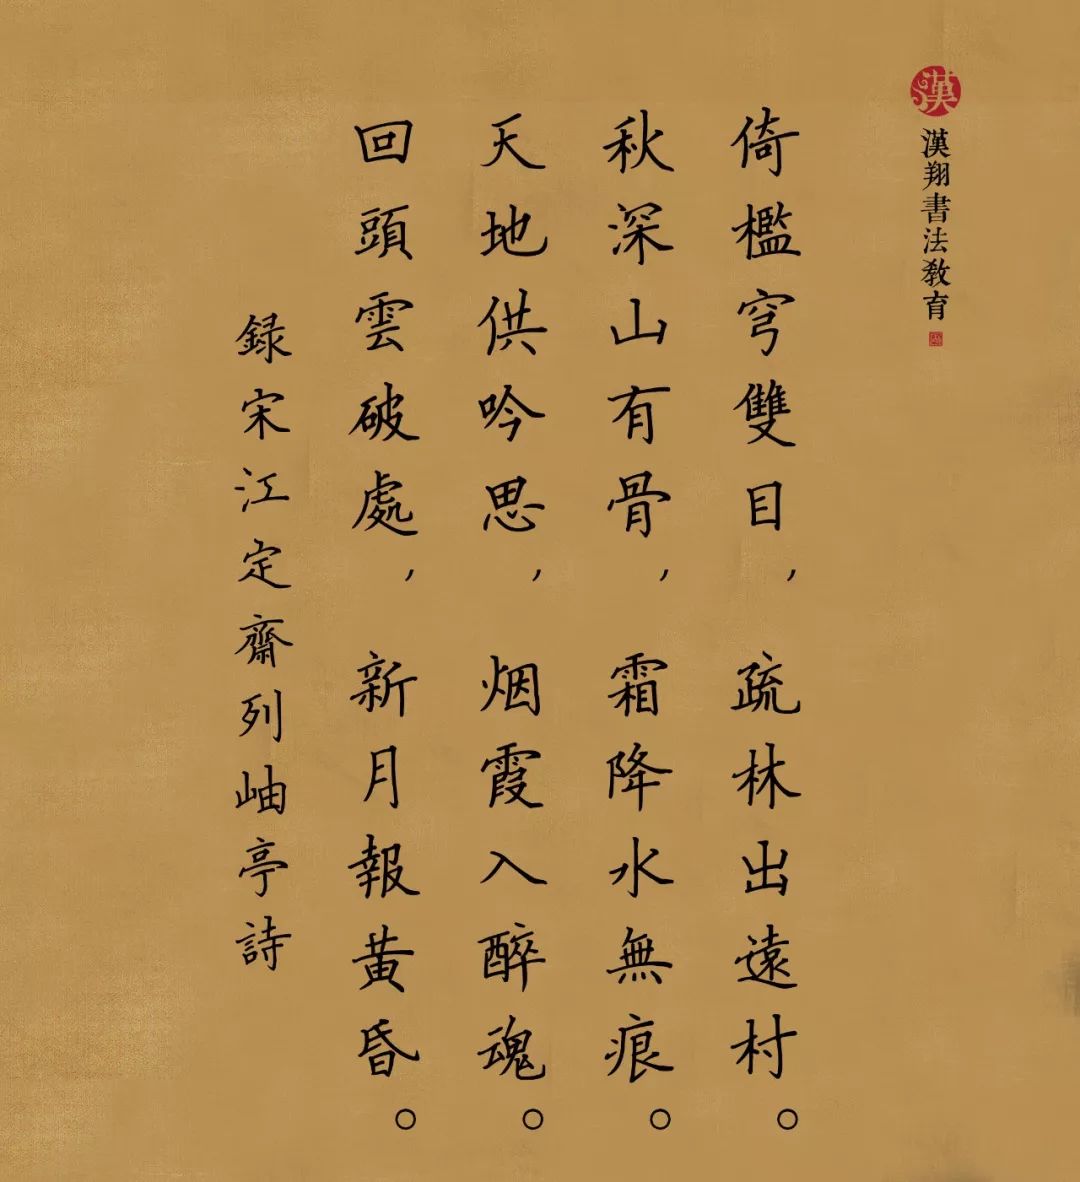 漢
漢翔書法教育
倚檻穹雙目，疏林出遠村。
秋深山有骨，霜降水無痕。
天地供吟思，烟霞入醉魂。
回頭雲破處，新月報黃昏。
録宋江定齋列岫亭詩